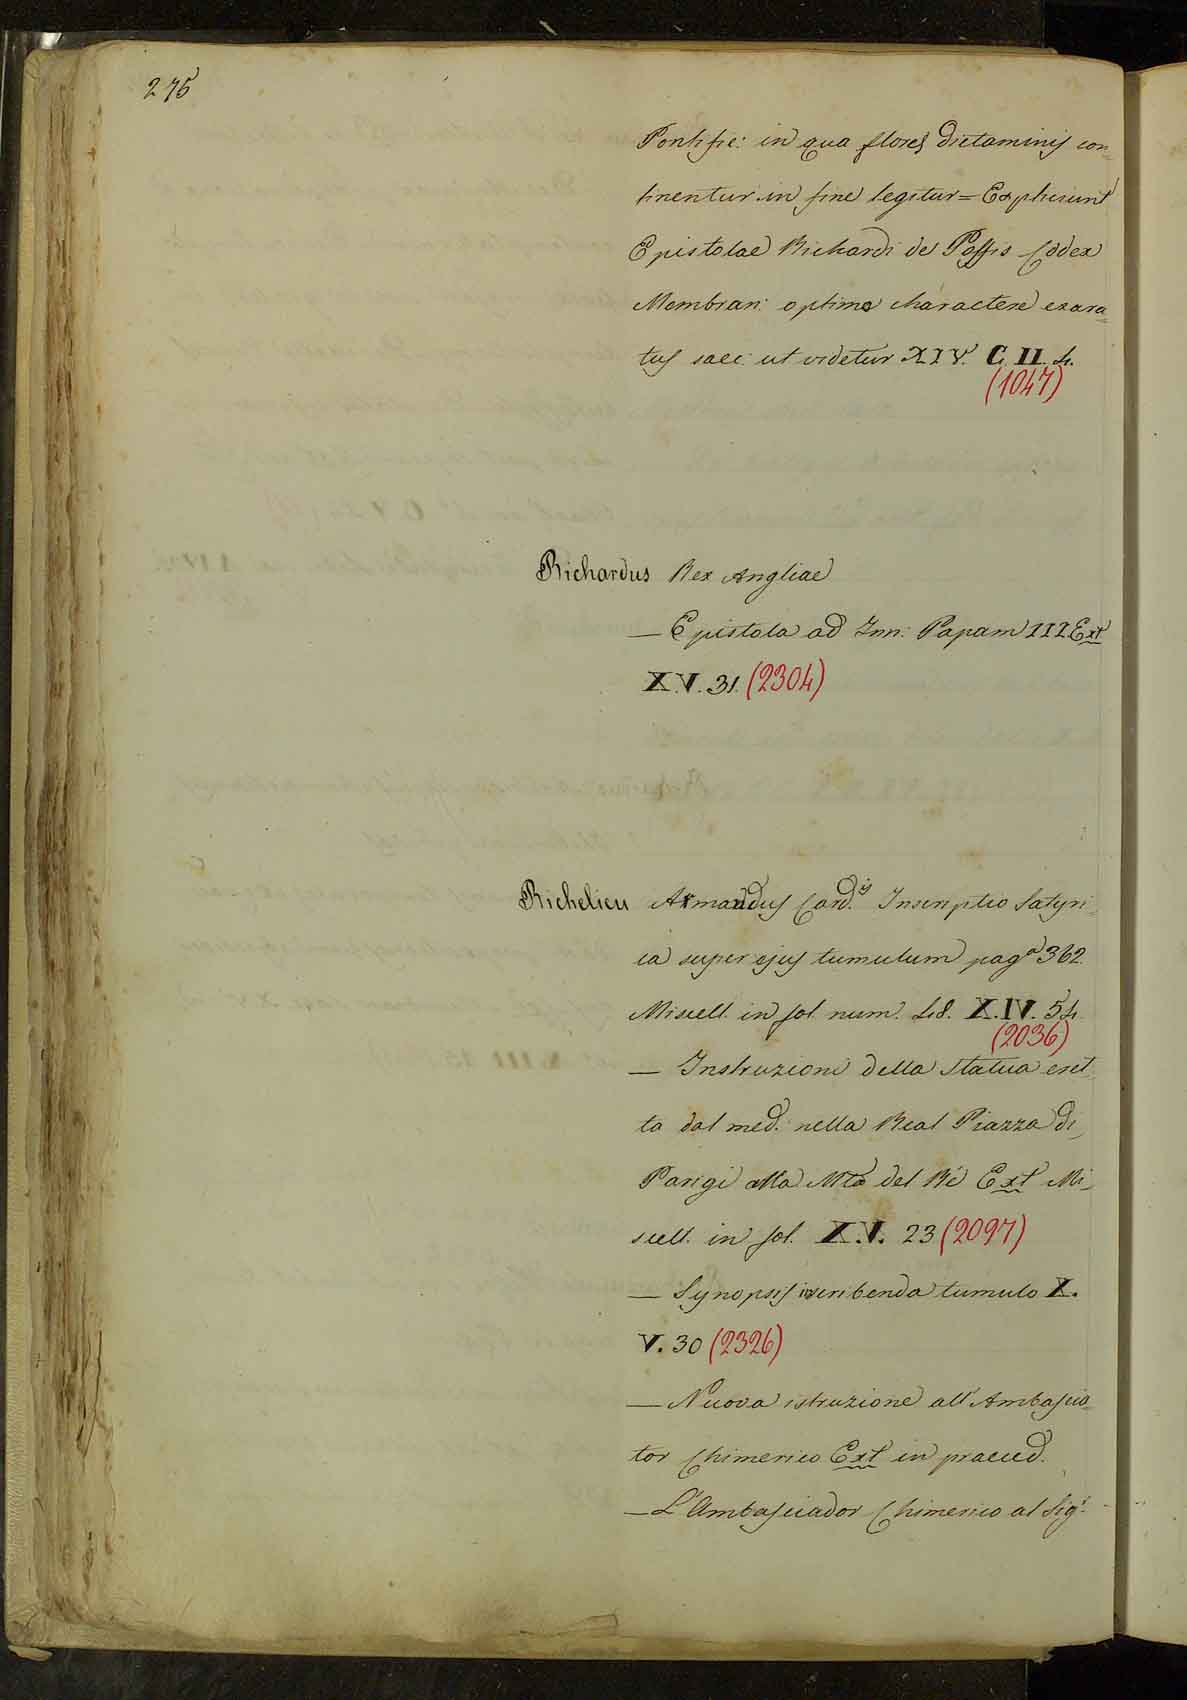 275
Pontific: in qua flores dictaminis con=
tinentur in fine legitur = Expliciunt
Epistolae Richardi de Poffis Codex
Membran: optimo charactere exara=
tus saec: ut videtur XIV. C. II. 4.
(1047)
Richardus Rex Angliae
— Epistola ad Inn: Papam III. Ext
X.V. 31. (2304)
Richelieu Armandus Card.is Inscriptio Satyri=
ca super ejus tumulum pag.a 362.
Miscell. in fol. num. 48. X.IV. 54.
(2036)
— Instruzioni della Statua eret=
ta dal med. nella Real Piazza di
Parigi alla Mtà del Rè Ext Mi=
scell. in fol. X.V. 23 (2097)
— Synopsis inscribenda tumulo X.
V. 30 (2326)
— Nuova istruzione all'Ambascia=
tor Chimerico Ext in praeced.
— L'Ambasciador Chimerico al Sig.r